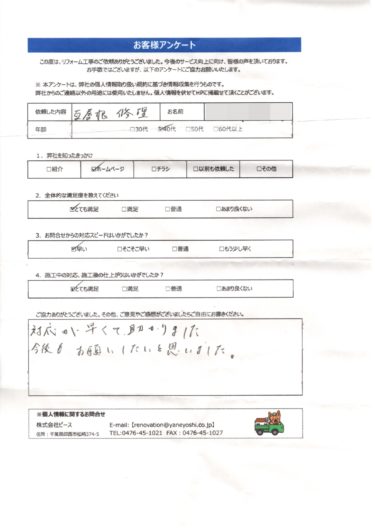 お客様アンケート
この度は、リフォーム工事のご依頼ありがとうございました。今後のサービス向上に向け、皆様の声を頂いております。
お手数ではございますが、以下のアンケートにご協力お願いいたします。
※ 本アンケートは、弊社の個人情報取り扱い規約に基づき情報収集を行うものです。
弊社からのご連絡以外の用途には使用いたしません。個人情報を伏せてHPに掲載せて頂くことがございます。
依頼した内容 瓦屋根 修理 お名前
年齢 □30代 ☑40代 □50代 □60代以上
1．弊社を知ったきっかけ
□紹介 ☑ホームページ □チラシ □以前も依頼した □その他
2．全体的な満足度を教えてください
☑とても満足 □満足 □普通 □あまり良くない
3．お問合せからの対応スピードはいかがでしたか？
☑早い □そこそこ早い □普通 □もう少し早く
4．施工中の対応、施工後の仕上がりないかがでしたか？
☑とても満足 □満足 □普通 □あまり良くない
ご協力ありがとうございました。その他、ご意見やご感想がございましたらご自由にお書きください。
対応が早くて助かりました
今後も お願いしたいと思いました。
※個人情報に関するお問合せ
株式会社ピース E-mail:【renovation@yaneyoshi.co.jp】
住所：千葉県印西市松崎374-5 TEL:0476-45-1021 FAX：0476-45-1027